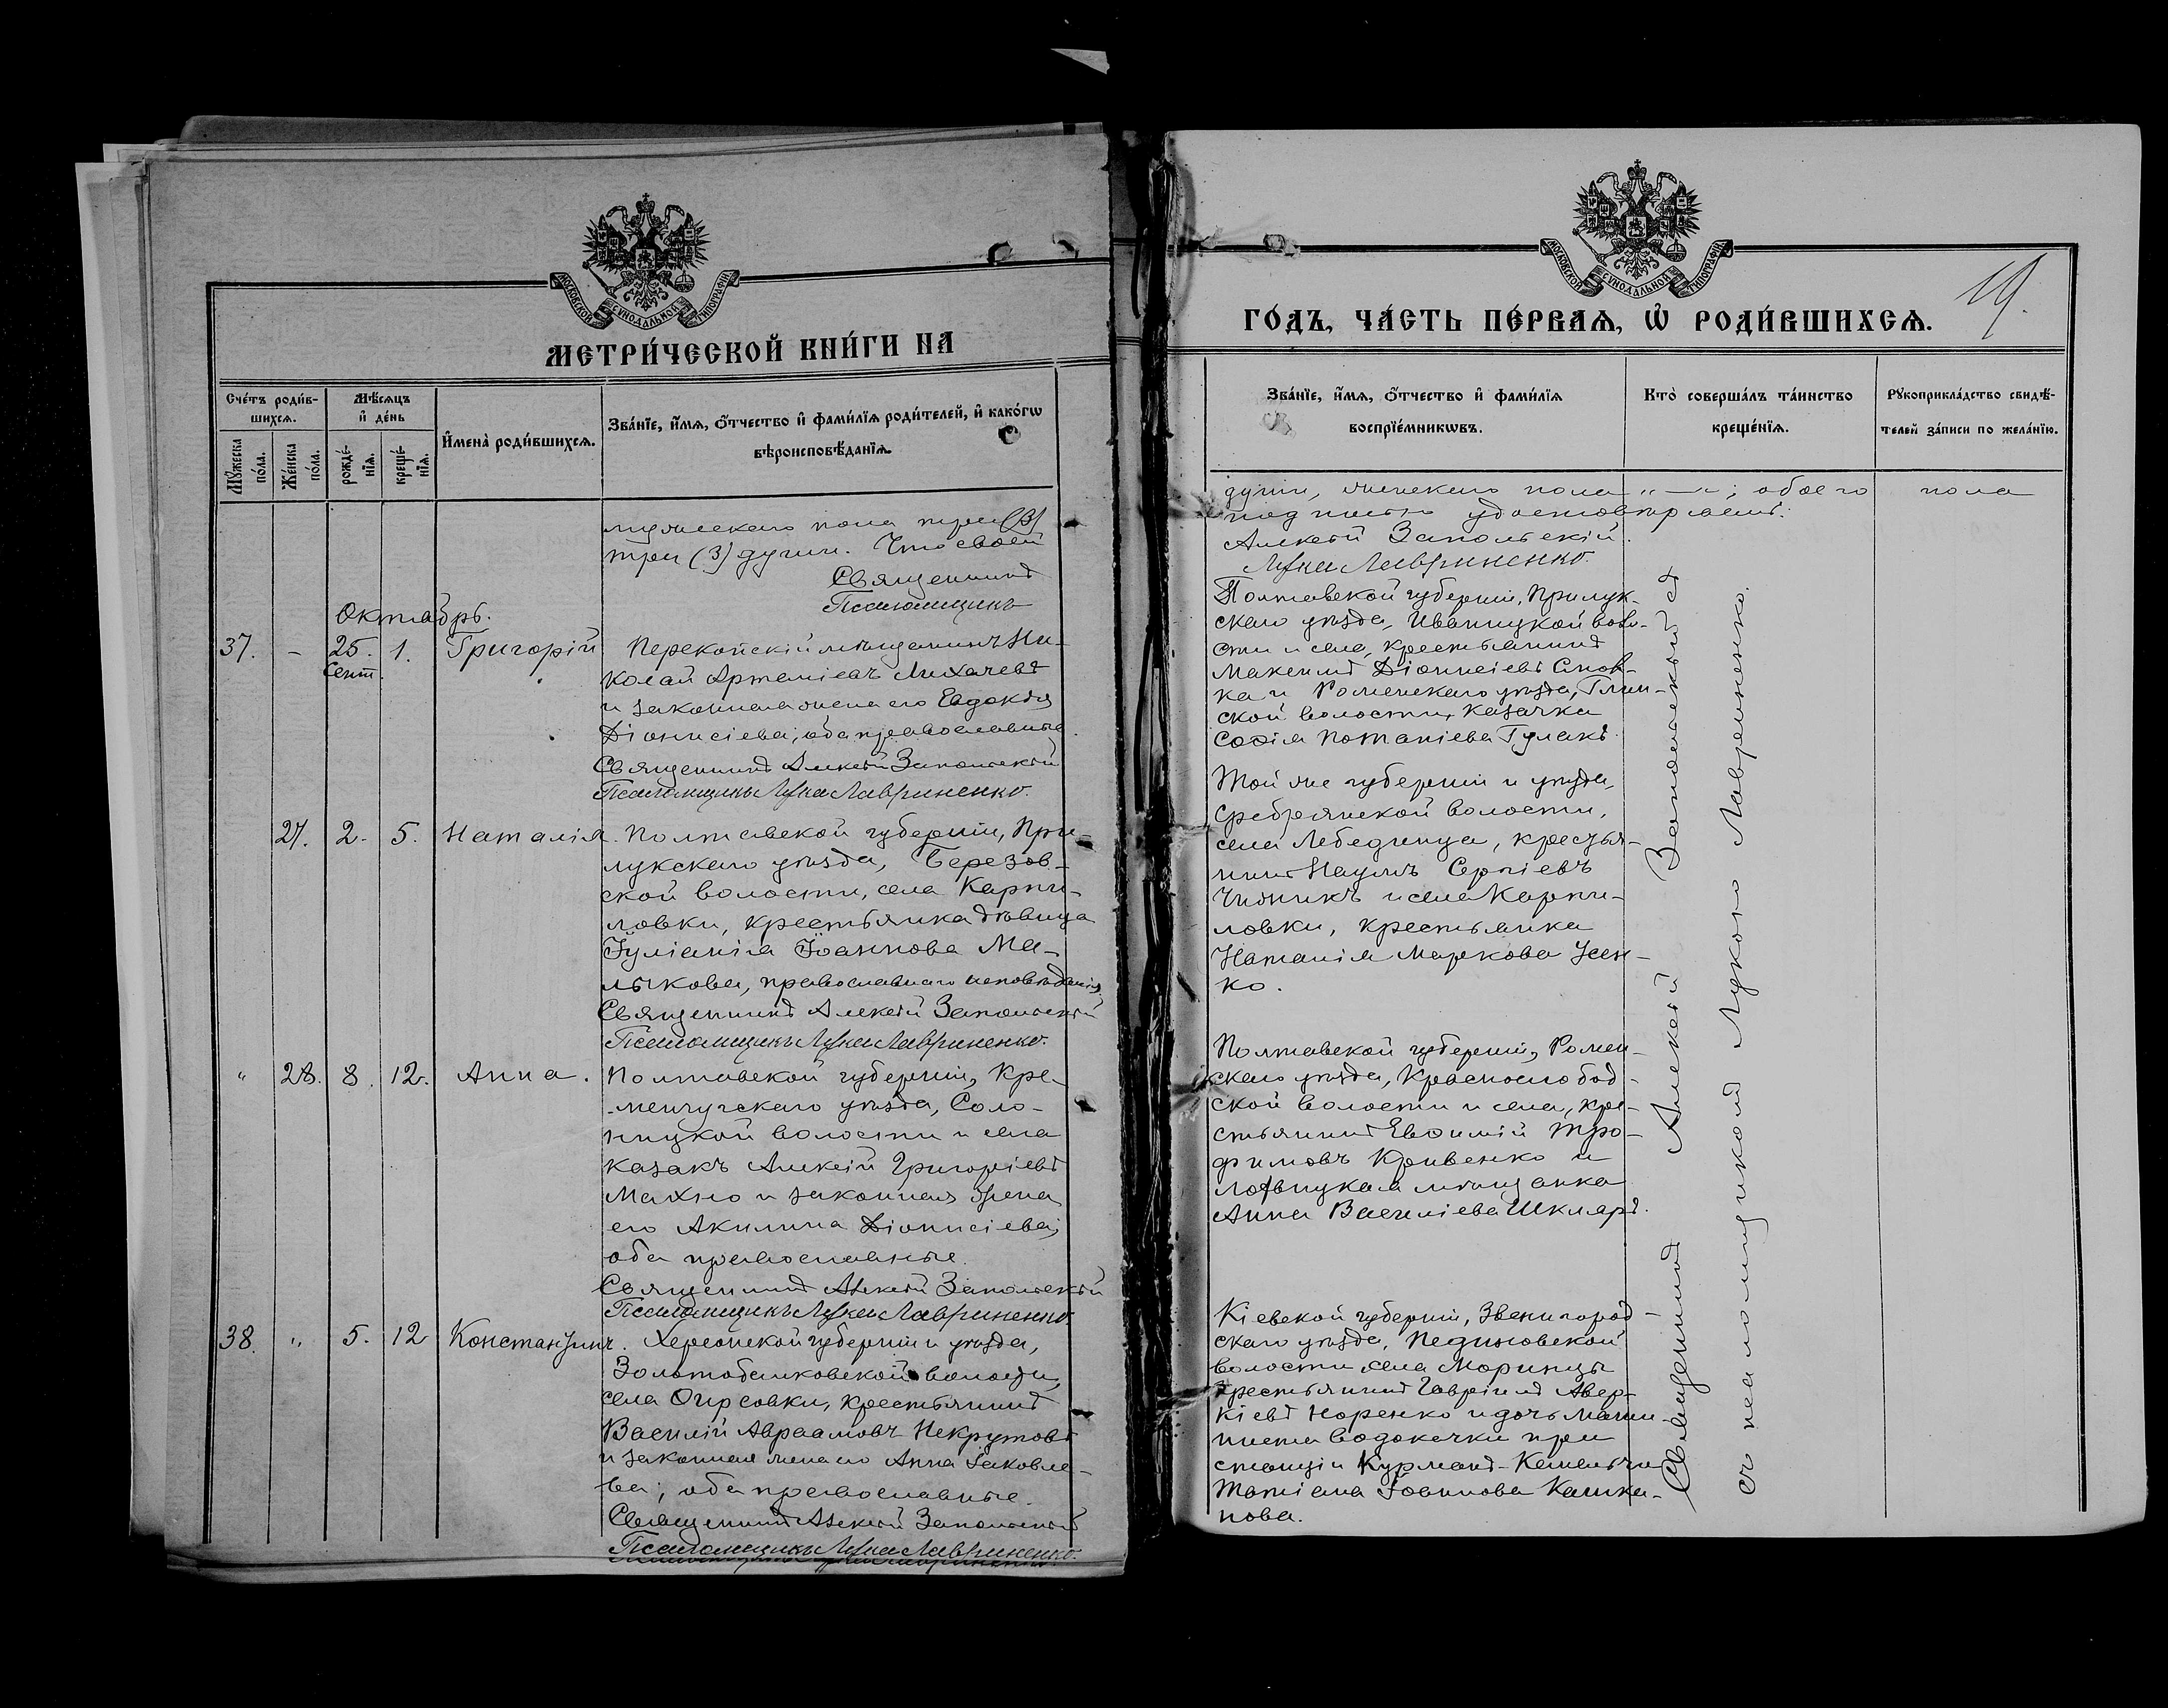 МОСКОВСКОЙ СѴНОДАЛЬНОЙ ТИПОГРАФІИ
МЕТРИ́ЧЕСКОЙ КНИ́ГИ НА
Сче́тъ роди́в-
шихся.
Мѣ́сяцъ
и҆ де́нь
Му́жеска
по́ла.
Же́нска
по́ла.
рожде́-
нїя.
креще́-
нїя.
И҆мена̀ роди́вшихся.
Зва́нїе, и҆́мя, ѻ҆́тчество и҆ фами́лїя роди́телей, и҆ како́гѡ
вѣроисповѣ́данїя.
мужескаго пола три (3)
три (3) души. Что своей
Священникъ
Псаломщикъ
Октябрь.
37. - 25. Сент. 1. Григорій
Перекопскій мѣщанинъ Ни-
колай Артеміевъ Лихачевъ
и законная жена его Евдокія
Діонисіева; оба православные.
Священникъ Алексій Запольскій
Псаломщикъ Лука Лавриненко.
27. 2. 5. Наталія.
Полтавской губерніи, При-
лукскаго уѣзда, Березов-
ской волости, села Карпи-
ловки, крестьянка дѣвица
Іуліанія Іоаннова Ма-
лькова, православнаго исповѣданія.
Священникъ Алексій Запольскій
Псаломщикъ Лука Лавриненко.
" 28. 8. 12. Анна.
Полтавской губерніи, Кре-
менчугскаго уѣзда, Соло-
ницкой волости и села
казакъ Алексій Григоріевъ
Махно и законная жена
его Акилина Діонисіева;
оба православные.
Священникъ Алексій Запольскій
Псаломщикъ Лука Лавриненко.
38. " 5. 12 Константинъ.
Херсонской губерніи и уѣзда,
Золотобалковской волости,
села Фирсовки, крестьянинъ
Василій Авраамовъ Некрутовъ
и законная жена его Анна Іаковле-
ва; оба православные.
Священникъ Алексій Запольскій
Псаломщикъ Лука Лавриненко.
МОСКОВСКОЙ СѴНОДАЛЬНОЙ ТИПОГРАФІИ
19.
ГО́ДЪ, ЧА́СТЬ ПЕ́РВАЯ, Ѡ҆ РОДИ́ВШИХСЯ.
Зва́нїе, и҆́мя, ѻ҆́тчество и҆ фами́лїя
воспрїе́мникѡвъ.
Кто̀ соверша́лъ та́инство
креще́нїя.
Рꙋкоприкла́дство свидѣ́-
телей за́писи по жела́нїю.
души, женскаго пола "—"; обоего пола
подписью удостовѣряемъ.
Алексій Запольскій.
Лука Лавриненко.
Полтавской губерніи, Прилук-
скаго уѣзда, Иваницкой воло-
сти и села, крестьянинъ
Максимъ Діонисіевъ
ка и Роменскаго уѣзда, Глин-
ской волости, казачка
Софія Потапіева Гулакъ.
Той же губерніи и уѣзда,
Сребрянской волости,
села Лебединца, крестья-
нинъ Наумъ Сергіевъ
Чижикъ и села Карпи-
ловки, крестьянка
Наталія Маркова Усен-
ко.
Полтавской губерніи, Ромен-
скаго уѣзда, Краснослобод-
ской волости и села, кре-
стьянинъ Евѳимій Тро-
фимовъ Кривенко и
Лохвицкая мѣщанка
Анна Василіева Шкляръ.
Кіевской губерніи, Звенигород-
скаго уѣзда, Пединовской
волости села Моринцы
крестьянинъ Гавріилъ Авер-
кіевъ Норенко и дочь маши-
ниста водокачки при
станціи Курманъ-Кемельчи
Татіана Іоаннова Кашка-
нова.
Священникъ Алексій Запольскій
съ псаломщикомъ Лукою Лавриненко.